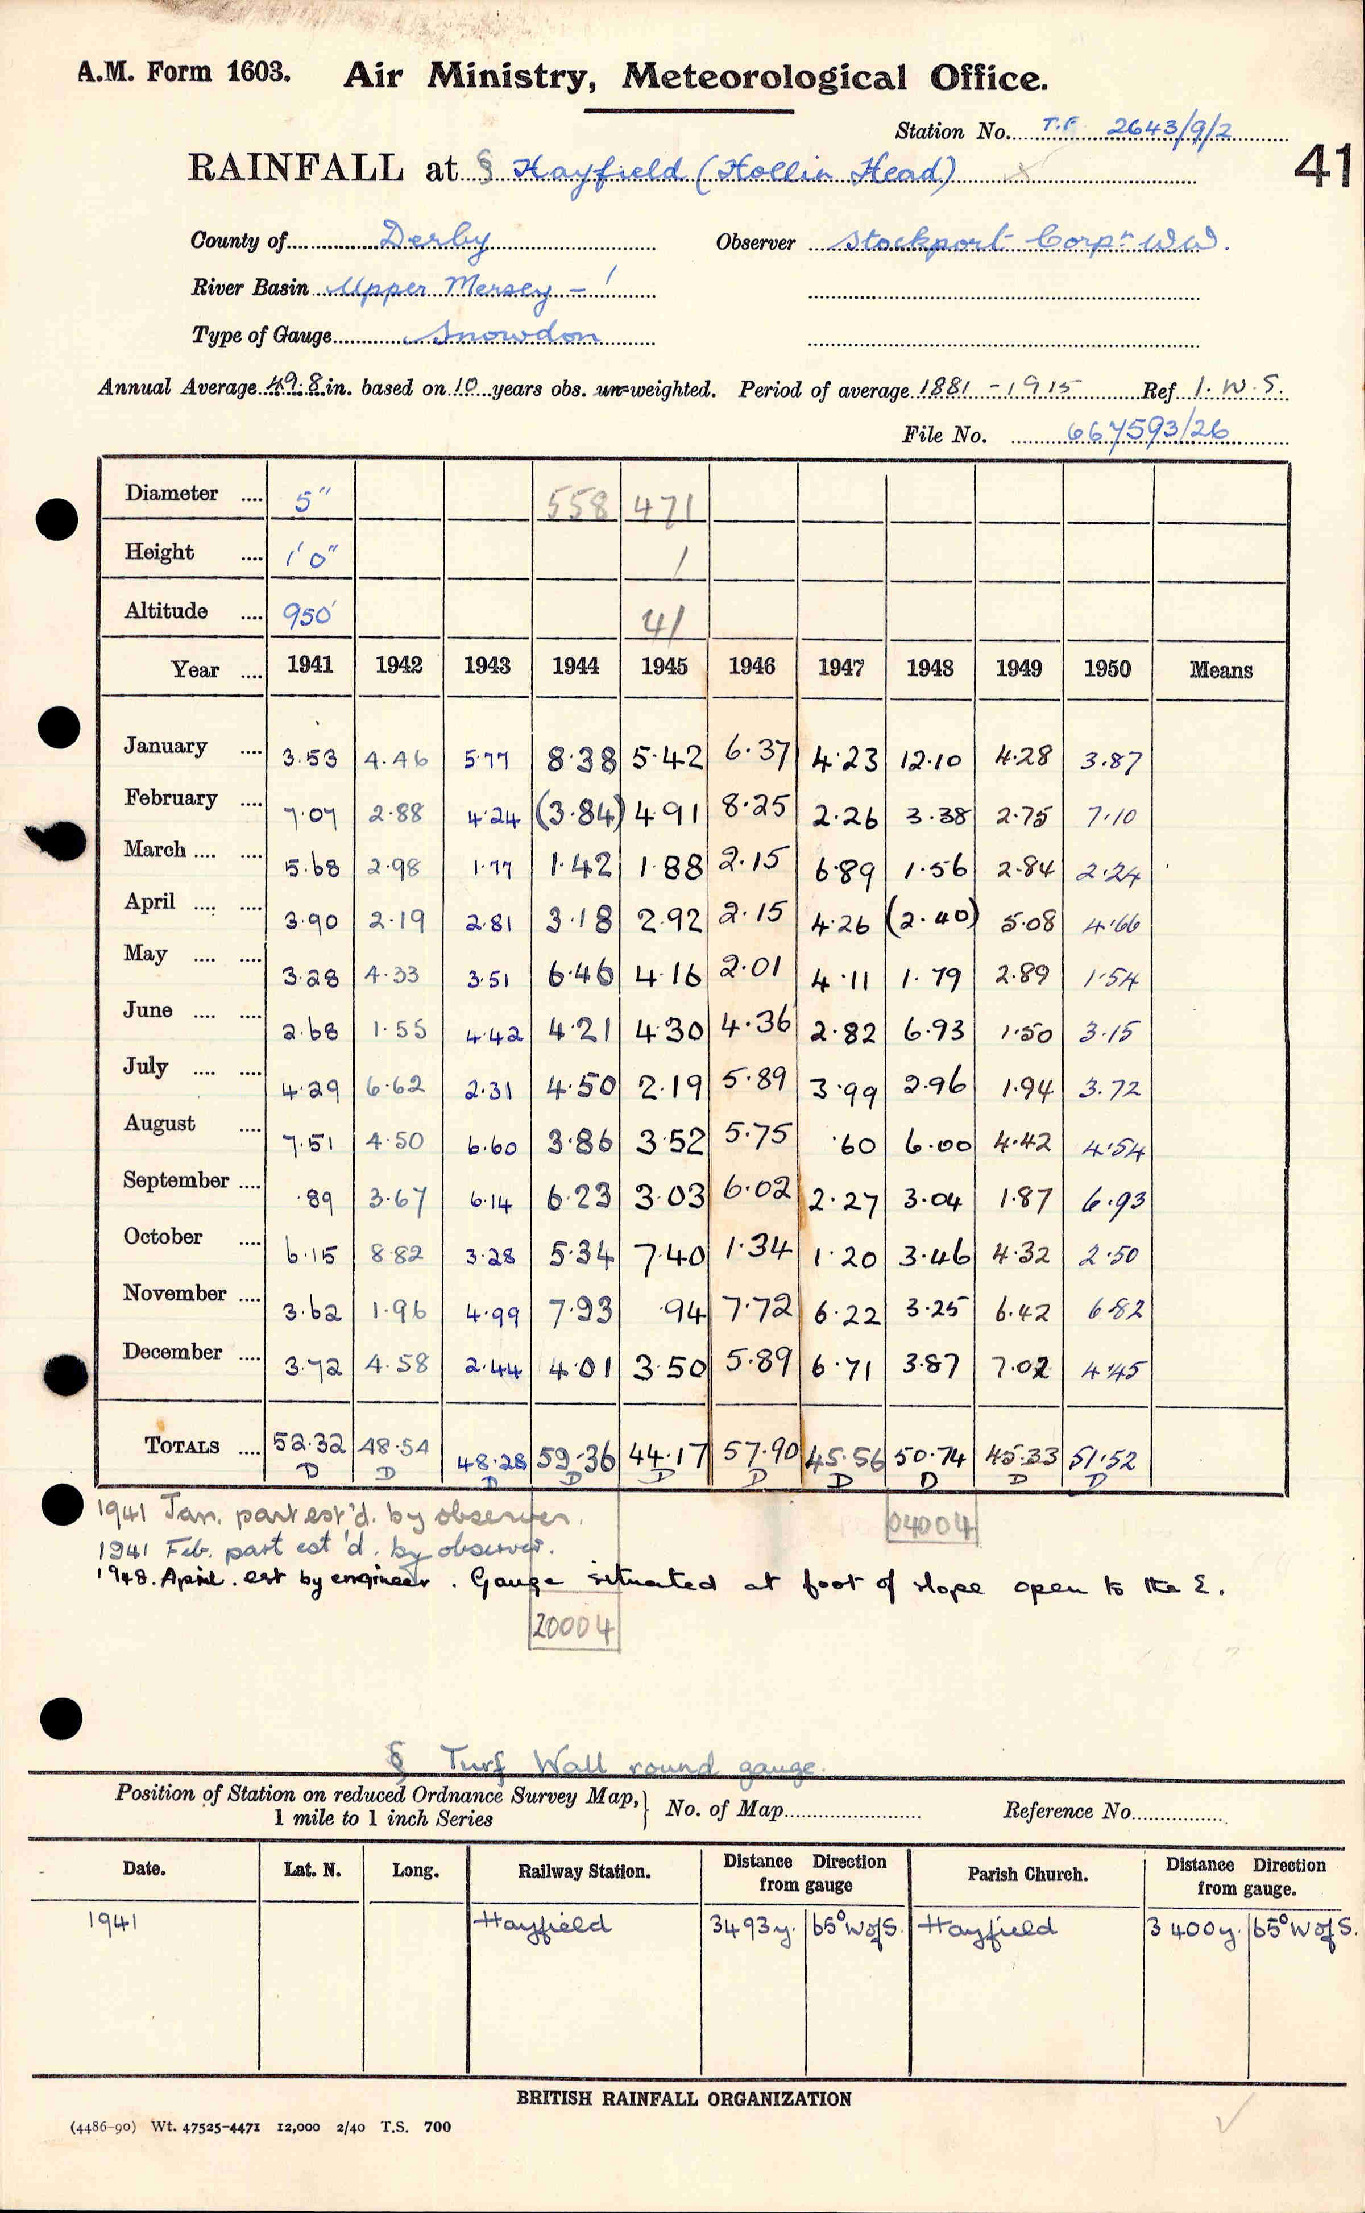 A.M. Form 1603. Air Ministry, Meteorological Office.
Station No. T.F. 2643/9/2
41
RAINFALL at § Hayfield (Hollin Head)
County of Derby Observer Stockport Corpn W.W.
River Basin Upper Mersey - 1
Type of Gauge Snowdon
Annual Average 49.8 in. based on 10 years obs. un-weighted. Period of average 1881 - 1915 Ref I. W. S.
File No. 667593/26
Diameter .... 5" 558 471
Height .... 1'0" 1
Altitude .... 950' 41
Year .... 1941 1942 1943 1944 1945 1946 1947 1948 1949 1950 Means
January .... 3.53 4.46 5.77 8.38 5.42 6.37 4.23 12.10 4.28 3.87
February .... 7.07 2.88 4.24 (3.84) 4.91 8.25 2.26 3.38 2.75 7.10
March .... .... 5.68 2.98 1.77 1.42 1.88 2.15 6.89 1.56 2.84 2.24
April .... .... 3.90 2.19 2.81 3.18 2.92 2.15 4.26 (2.40) 5.08 4.66
May .... .... 3.28 4.33 3.51 6.46 4.16 2.01 4.11 1.79 2.89 1.54
June .... .... 2.68 1.55 4.42 4.21 4.30 4.36 2.82 6.93 1.50 3.15
July .... .... 4.29 6.62 2.31 4.50 2.19 5.89 3.99 2.96 1.94 3.72
August .... 7.51 4.50 6.60 3.86 3.52 5.75 .60 6.00 4.42 4.54
September .... .89 3.67 6.14 6.23 3.03 6.02 2.27 3.04 1.87 6.93
October .... 6.15 8.82 3.28 5.34 7.40 1.34 1.20 3.46 4.32 2.50
November .... 3.62 1.96 4.99 7.93 .94 7.72 6.22 3.25 6.42 6.82
December .... 3.72 4.58 2.44 4.01 3.50 5.89 6.71 3.87 7.02 4.45
TOTALS .... 52.32 48.54 48.28 59.36 44.17 57.90 45.56 50.74 45.33 51.52
D D D D D D D D D D
1941 Jan. part est'd. by observer.
04004
1941 Feb. part est'd. by observer.
1948. April. est by engineer. Gauge situated at foot of slope open to the E.
20004
§ Turf Wall round gauge.
Position of Station on reduced Ordnance Survey Map, 1 mile to 1 inch Series } No. of Map Reference No.
Date. Lat. N. Long. Railway Station. Distance Direction from gauge Parish Church. Distance Direction from gauge.
1941 Hayfield 3493y. 65° W of S. Hayfield 3400y. 65° W of S.
BRITISH RAINFALL ORGANIZATION
(4486-90) Wt. 47525-4471 12,000 2/40 T.S. 700